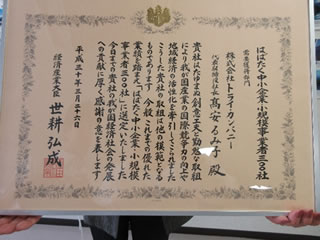 はばたく中小企業・小規模事業者三〇〇社
需要獲得部門
株式会社トライカンパニー
代表取締役社長 髙安るみ子 殿
貴社はたゆまぬ創意工夫と勤勉な取組
により我が国産業の国際競争力の向上や
地域経済の活性化を牽引してこられました
こうした貴社の取組は他の模範となる
ものであります 今般 これまでの優れた
業績を踏まえ「はばたく中小企業・小規模
事業者三〇〇社」に選定いたしました
今日までの貴社の我が国経済社会の発展
への貢献に厚く感謝の意を表します
平成三十年三月二十六日
経済産業大臣 世耕弘成